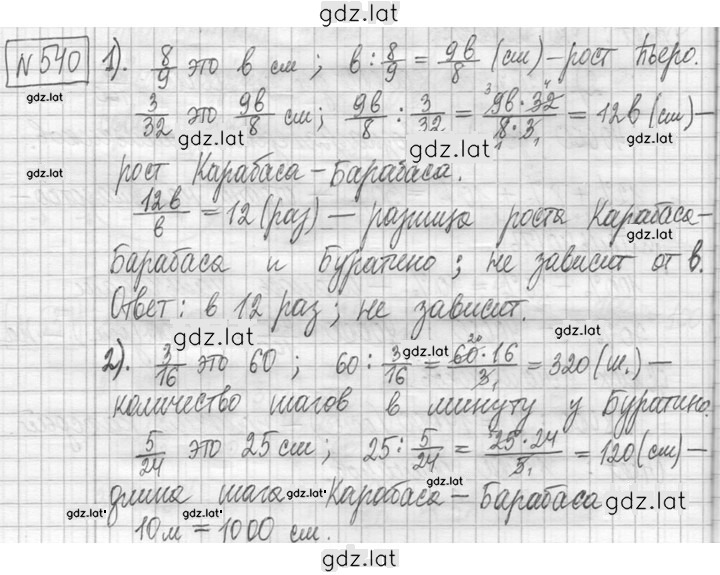 gdz.lat
№ 540 1). 8/9 это в см; в : 8/9 = 9в/8 (см) – рост Пьеро.
gdz.lat
3/32 это 9в/8 см; 9в/8 : 3/32 = 9в · 32/8 · 3 = 12в (см) –
gdz.lat gdz.lat
gdz.lat
рост Карабаса – Барабаса.
12в/в = 12 (раз) – разница роста Карабаса–
gdz.lat
Барабаса и Буратино; не зависит от в.
Ответ: в 12 раз; не зависит.
gdz.lat gdz.lat
2). 3/16 это 60; 60 : 3/16 = 60 · 16/3 = 320 (ш.) –
gdz.lat
количество шагов в минуту у Буратино.
5/24 это 25 см; 25 : 5/24 = 25 · 24/5 = 120 (см) –
длина шага Карабаса – Барабаса
gdz.lat gdz.lat
10 м = 1000 см.
gdz.lat gdz.lat gdz.lat
gdz.lat